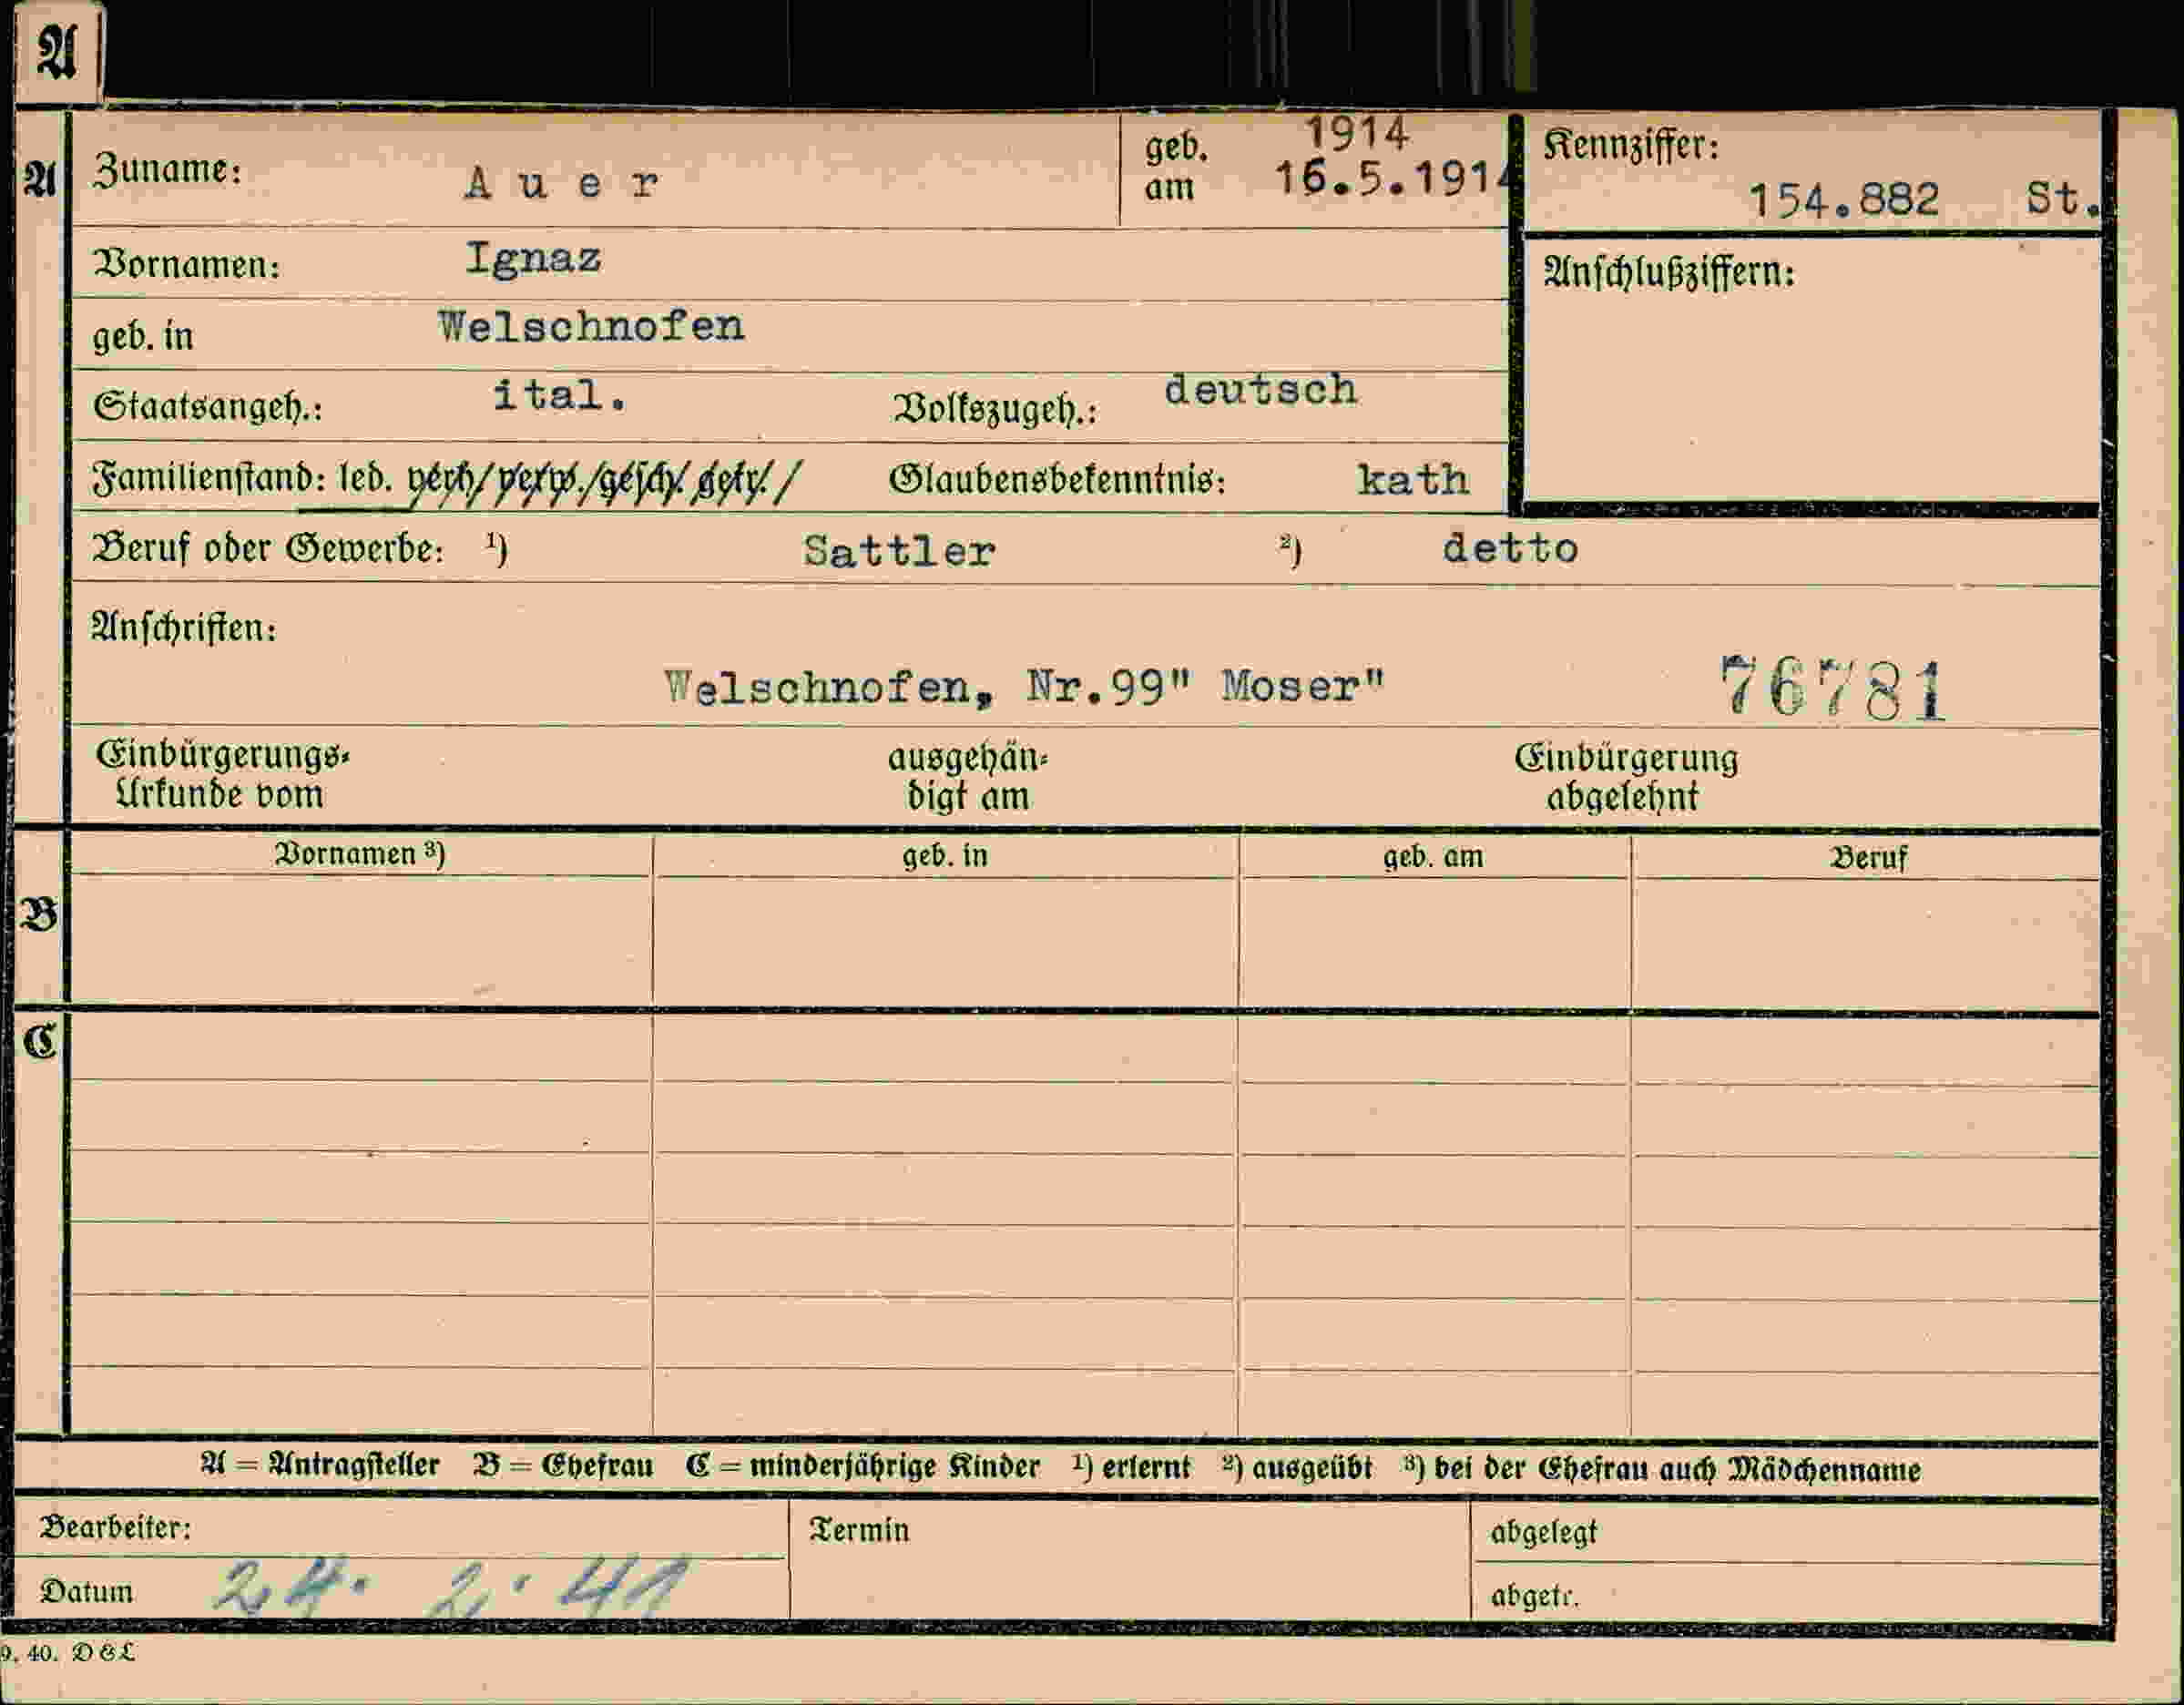 A
A Zuname: Auer geb. am 1914 16.5.1914 Kennziffer: 154.882 St.
Vornamen: Ignaz Anschlußziffern:
geb. in Welschnofen
Staatsangeh.: ital. Volkszugeh.: deutsch
Familienstand: led. verh/verw./gesch/ getr./ Glaubensbekenntnis: kath
Beruf oder Gewerbe: ¹) Sattler ²) detto
Anschriften:
Welschnofen, Nr.99" Moser" 76781
Einbürgerungs- ausgehän- Einbürgerung
Urkunde vom digt am abgelehnt
Vornamen ³) geb. in geb. am Beruf
B
C
A = Antragsteller B = Ehefrau C = minderjährige Kinder ¹) erlernt ²) ausgeübt ³) bei der Ehefrau auch Mädchenname
Bearbeiter: Termin abgelegt
Datum 24. 2. 41 abgetr.
9. 40. D & L